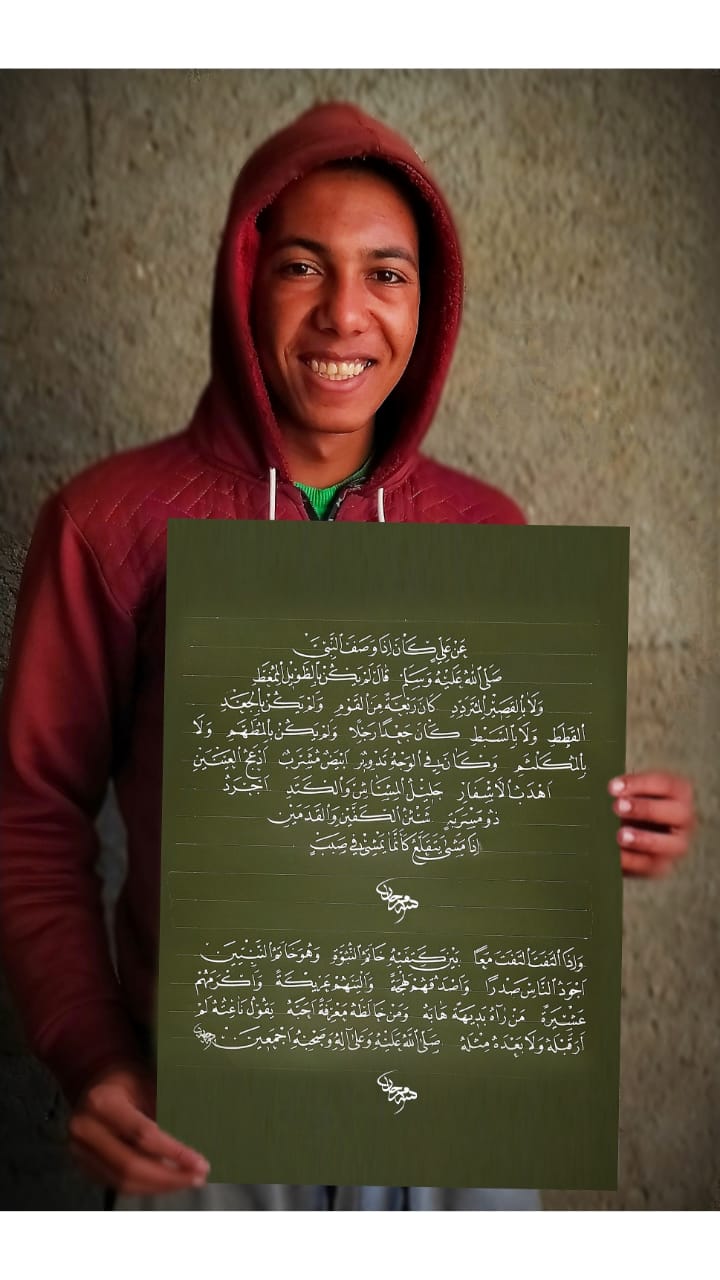 عَنْ عَلِيٍّ كَانَ إِذَا وَصَفَ النَّبِيَّ
صَلَّى اللهُ عَلَيْهِ وَسَلَّمَ قَالَ لَمْ يَكُنْ بِالطَّوِيلِ الْمُمَّغِطِ
وَلَا الْقَصِيرِ الْمُتَرَدِّدِ كَانَ رَبْعَةً مِنَ الْقَوْمِ وَلَمْ يَكُنْ بِالْجَعْدِ
الْقَطَطِ وَلَا بِالسَّبْطِ كَانَ جَعْدًا رَجِلًا وَلَمْ يَكُنْ بِالْمُطَهَّمِ وَلَا
بِالْمُكَلْثَمِ وَكَانَ فِي الْوَجْهِ تَدْوِيرٌ أَبْيَضُ مُشْرَبٌ أَدْعَجُ الْعَيْنَيْنِ
أَهْدَبُ الْأَشْفَارِ جَلِيلُ الْمُشَاشِ وَالْكَتَدِ أَجْرَدُ
ذُو مَسْرُبَةٍ شَثْنُ الْكَفَّيْنِ وَالْقَدَمَيْنِ
إِذَا مَشَى يَتَقَلَّعُ كَأَنَّمَا يَمْشِي فِي صَبَبٍ
وَإِذَا الْتَفَتَ الْتَفَتَ مَعًا بَيْنَ كَتِفَيْهِ خَاتَمُ النُّبُوَّةِ وَهُوَ خَاتَمُ النَّبِيِّينَ
أَجْوَدُ النَّاسِ صَدْرًا وَأَصْدَقُهُمْ لَهْجَةً وَأَلْيَنُهُمْ عَرِيكَةً وَأَكْرَمُهُمْ
عَشِيرَةً مَنْ رَآهُ بَدِيهَةً هَابَهُ وَمَنْ خَالَطَهُ مَعْرِفَةً أَحَبَّهُ يَقُولُ نَاعِتُهُ لَمْ
أَرَ قَبْلَهُ وَلَا بَعْدَهُ مِثْلَهُ صَلَّى اللهُ عَلَيْهِ وَعَلَى آلِهِ وَصَحْبِهِ أَجْمَعِينَ